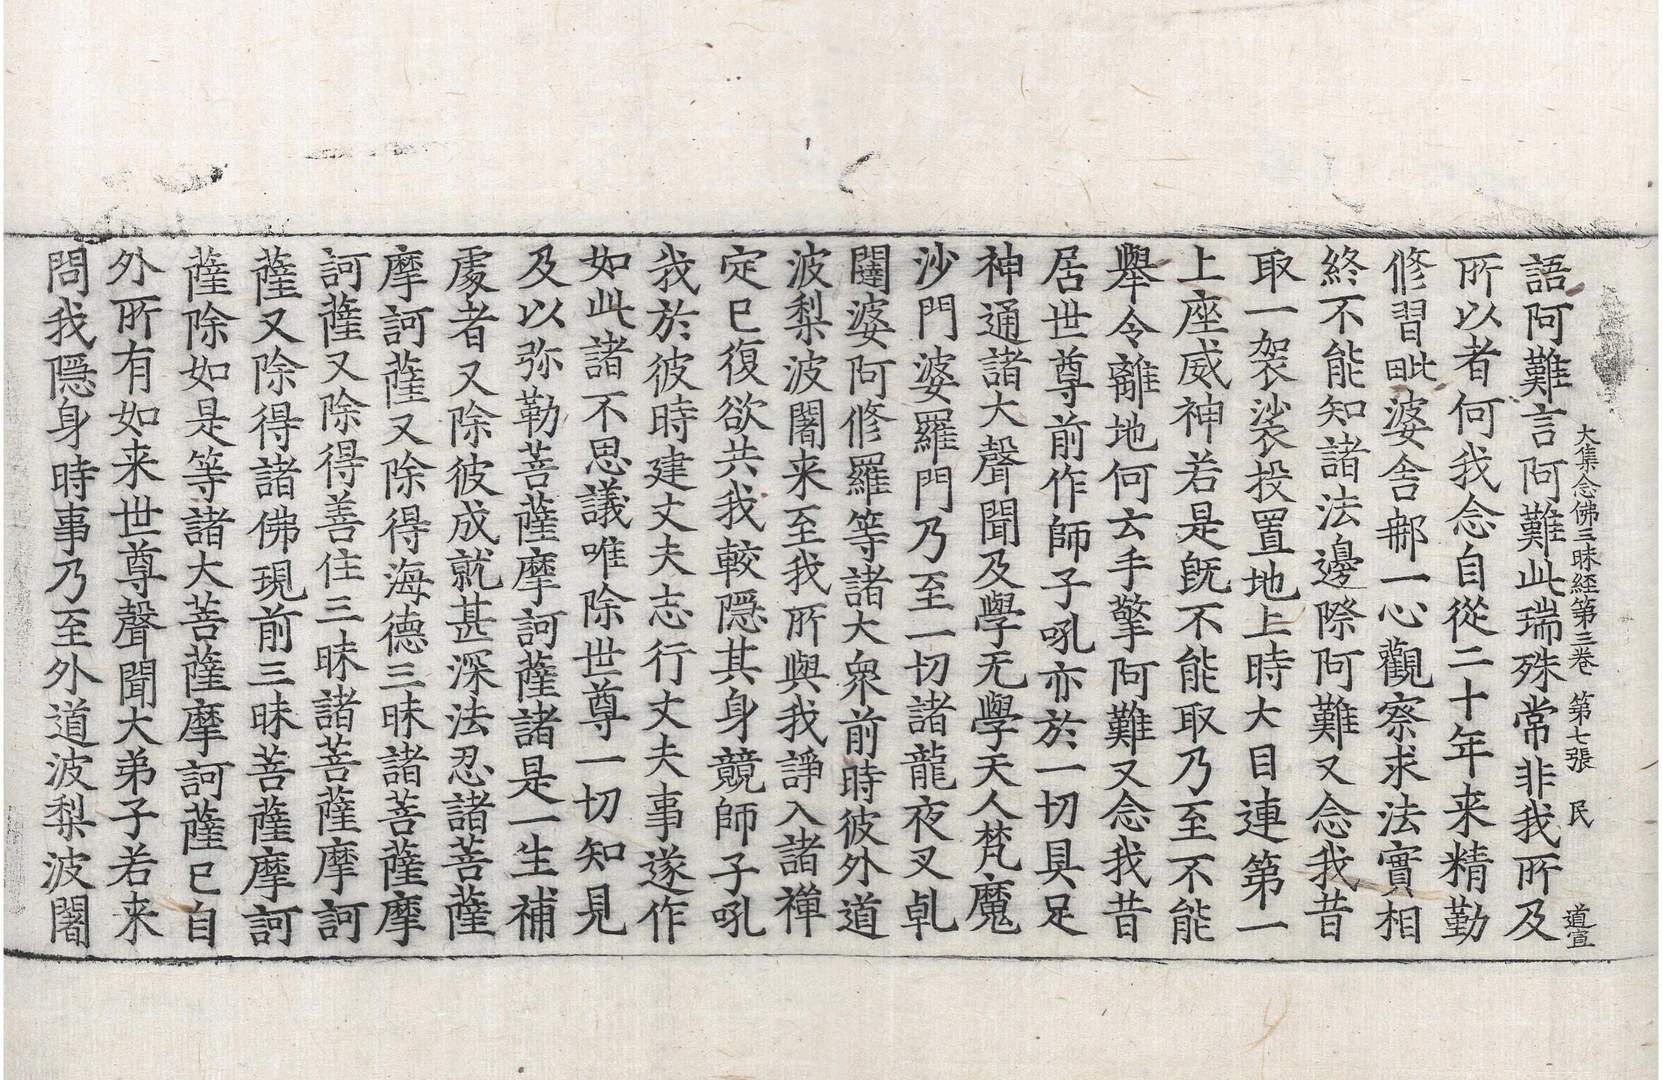 大集念佛三昧経第三卷 第七張 民 道宣
語阿難言阿難此瑞殊常非我所及
所以者何我念自從二十年来精勤
修習毗婆舍𨚗一心觀察求法實相
終不能知諸法邊際阿難又念我昔
取一袈裟投置地上時大目連第一
上座威神若是既不能取乃至不能
舉令離地何玄手擎阿難又念我昔
居世尊前作師子吼亦於一切具足
神通諸大聲聞及學无學天人梵魔
沙門婆羅門乃至一切諸龍夜叉乹
闥婆阿修羅等諸大衆前時彼外道
波梨波闍来至我所與我諍入諸禪
定已復欲共我較隱其身競師子吼
我於彼時建丈夫志行丈夫事遂作
如此諸不思議唯除世尊一切知見
及以弥勒菩薩摩訶薩諸是一生補
處者又除彼成就甚深法忍諸菩薩
摩訶薩又除得海德三昧諸菩薩摩
訶薩又除得善住三昧諸菩薩摩訶
薩又除得諸佛現前三昧菩薩摩訶
薩除如是等諸大菩薩摩訶薩已自
外所有如来世尊聲聞大弟子若来
問我隱身時事乃至外道波梨波闍